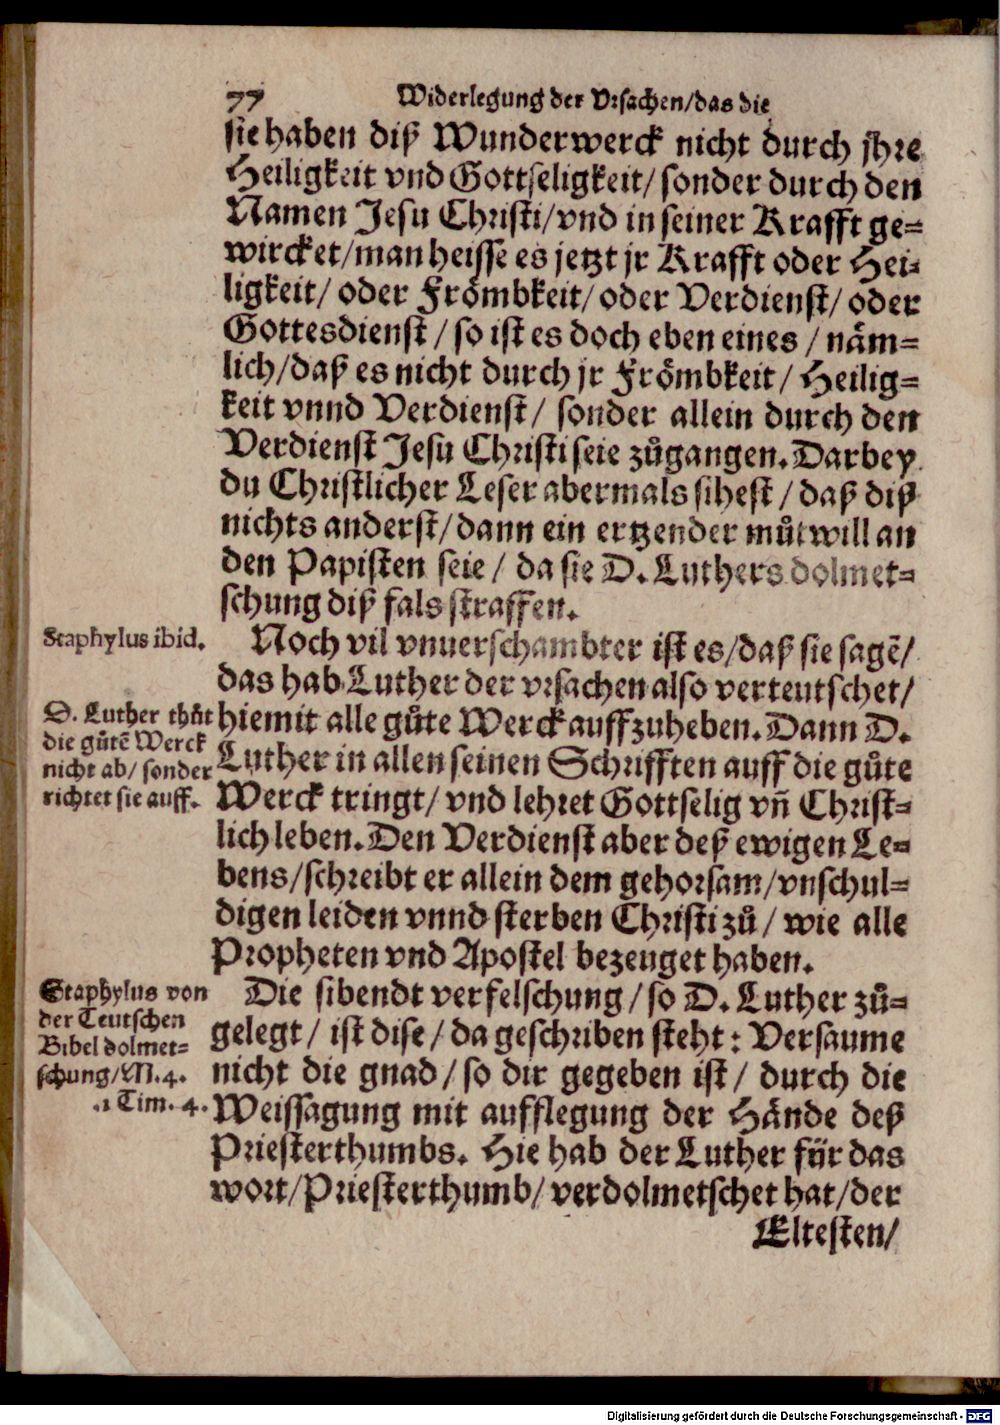 77 Widerlegung der Vrsachen/das die
sie haben diß Wunderwerck nicht durch jhre
Heiligkeit vnd Gottseligkeit/ sonder durch den
Namen Jesu Christi/vnd in seiner Krafft ge=
wircket/man heisse es jetzt jr Krafft oder Hei=
ligkeit/ oder Frömbkeit/ oder Verdienst/ oder
Gottesdienst / so ist es doch eben eines / näm=
lich/daß es nicht durch jr Frömbkeit/ Heilig=
keit vnnd Verdienst/ sonder allein durch den
Verdienst Jesu Christi seie zůgangen. Darbey
du Christlicher Leser abermals sihest / daß diß
nichts anderst/dann ein ertzender můtwill an
den Papisten seie / da sie D. Luthers dolmet=
schung diß fals straffen.
Staphylus ibid.
Noch vil vnuerschambter ist es/daß sie sagẽ/
das hab Luther der vrsachen also verteutschet/
D. Luther thůt
die gůtẽ Werck
nicht ab/ sonder
richtet sie auff.
hiemit alle gůte Werck auffzuheben. Dann D.
Luther in allen seinen Schrifften auff die gůte
Werck tringt/ vnd lehret Gottselig vñ Christ=
lich leben. Den Verdienst aber deß ewigen Le=
bens/schreibt er allein dem gehorsam/vnschul=
digen leiden vnnd sterben Christi zů/ wie alle
Propheten vnd Apostel bezeuget haben.
Staphylus von
der Teutschen
Bibel dolmet=
schung/M.4.
.1 Tim. 4.
Die sibendt verfelschung/so D. Luther zů=
gelegt/ ist dise/ da geschriben steht: Versaume
nicht die gnad/ so dir gegeben ist/ durch die
Weissagung mit aufflegung der Hände deß
Priesterthumbs. Hie hab der Luther für das
wort/Priesterthumb/ verdolmetschet hat/der
Eltesten/
Digitalisierung gefördert durch die Deutsche Forschungsgemeinschaft - DFG